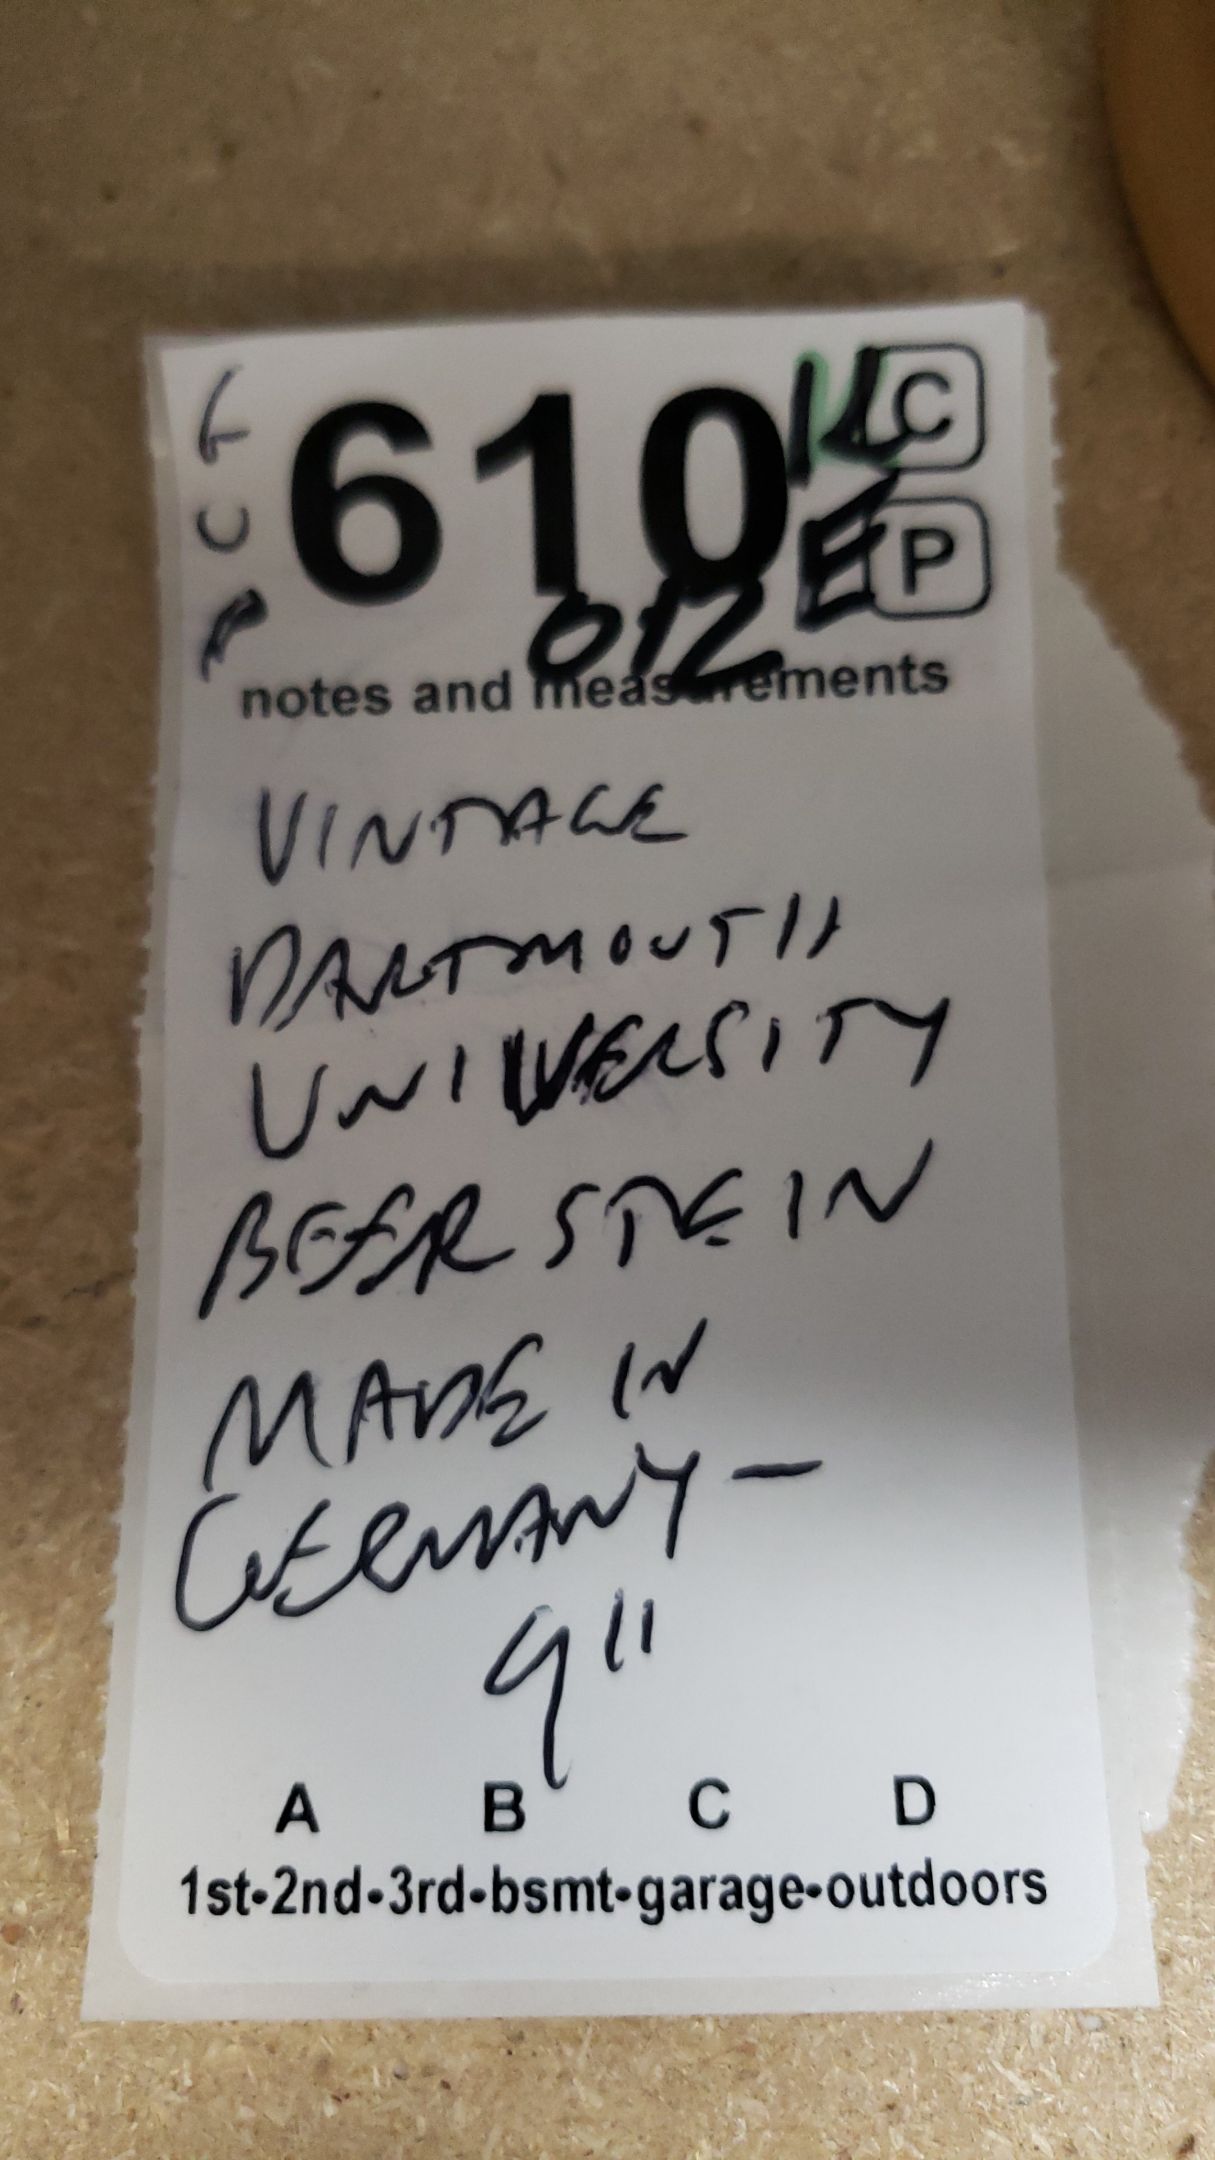 610
C
P
012
notes and measurements
VINTAGE
DARTMOUTH
UNIVERSITY
BEER STEIN
MADE IN
GERMANY —
9"
A B C D
1st•2nd•3rd•bsmt•garage•outdoors